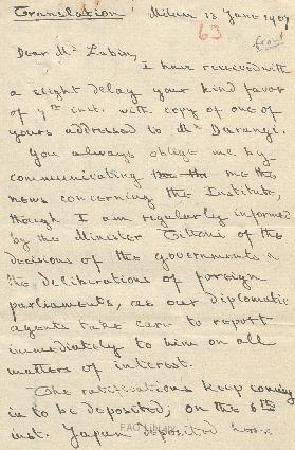 Translation Milan 13 June 1907
63
from
Dear Mr Lubin,
I have received with
a slight delay your kind favor
of 7th inst. with copy of one of
yours addressed to Mr
You always oblige me by
communicating to me the
news concerning the Institute,
though I am regularly informed
by the Minister Tittoni of the
decisions of the governments &
the deliberations of foreign
parliaments, as our diplomatic
agents take care to report
immediately to him on all
matters of interest.
The ratifications keep coming
in to be deposited; on the 6th
inst. Japan deposited hers
FAO Library